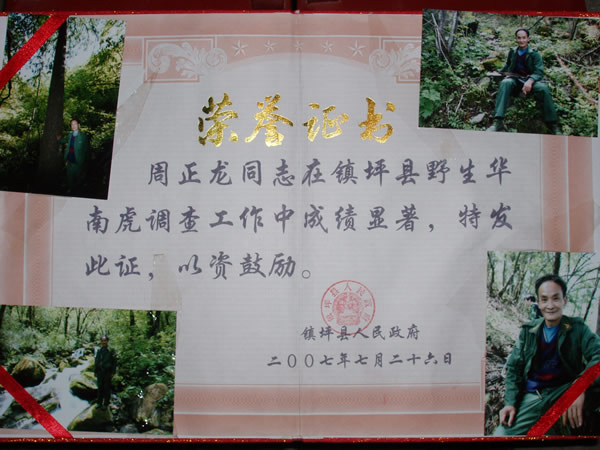 荣誉证书
周正龙同志在镇坪县野生华
南虎调查工作中成绩显著，特发
此证，以资鼓励。
镇坪县人民政府
镇坪县人民政府
二〇〇七年七月二十六日